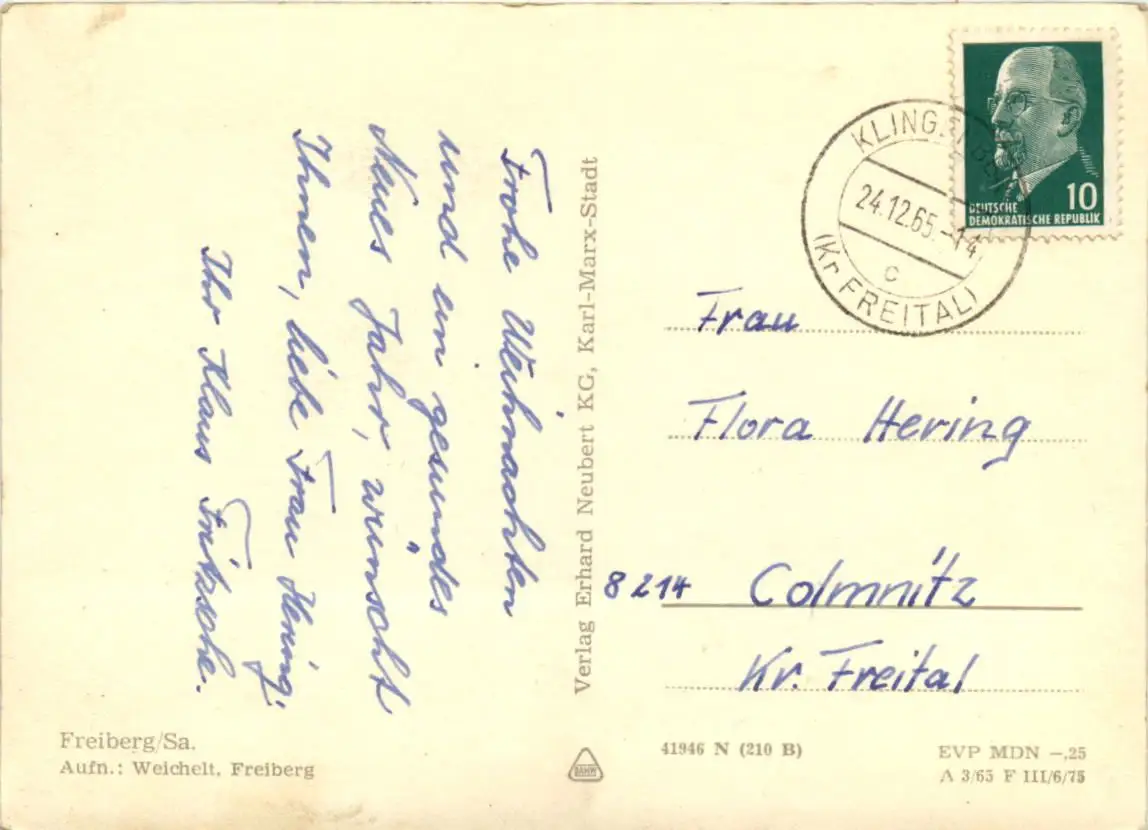 Frohe Weihnachten
und ein gesundes
Neues Jahr, wünscht
Ihnen, liebe Frau Hering.
Ihr Klaus Fritzsche.
Freiberg/Sa.
Aufn.: Weichelt, Freiberg
Verlag Erhard Neubert KG, Karl-Marx-Stadt
10
DEUTSCHE
DEMOKRATISCHE REPUBLIK
24.12.65.-14
c
(Kr FREITAL)
Frau
Flora Hering
8214 Colmnitz
Kr. Freital
41946 N (210 B)
EVP MDN -,25
A 3/65 F III/6/75